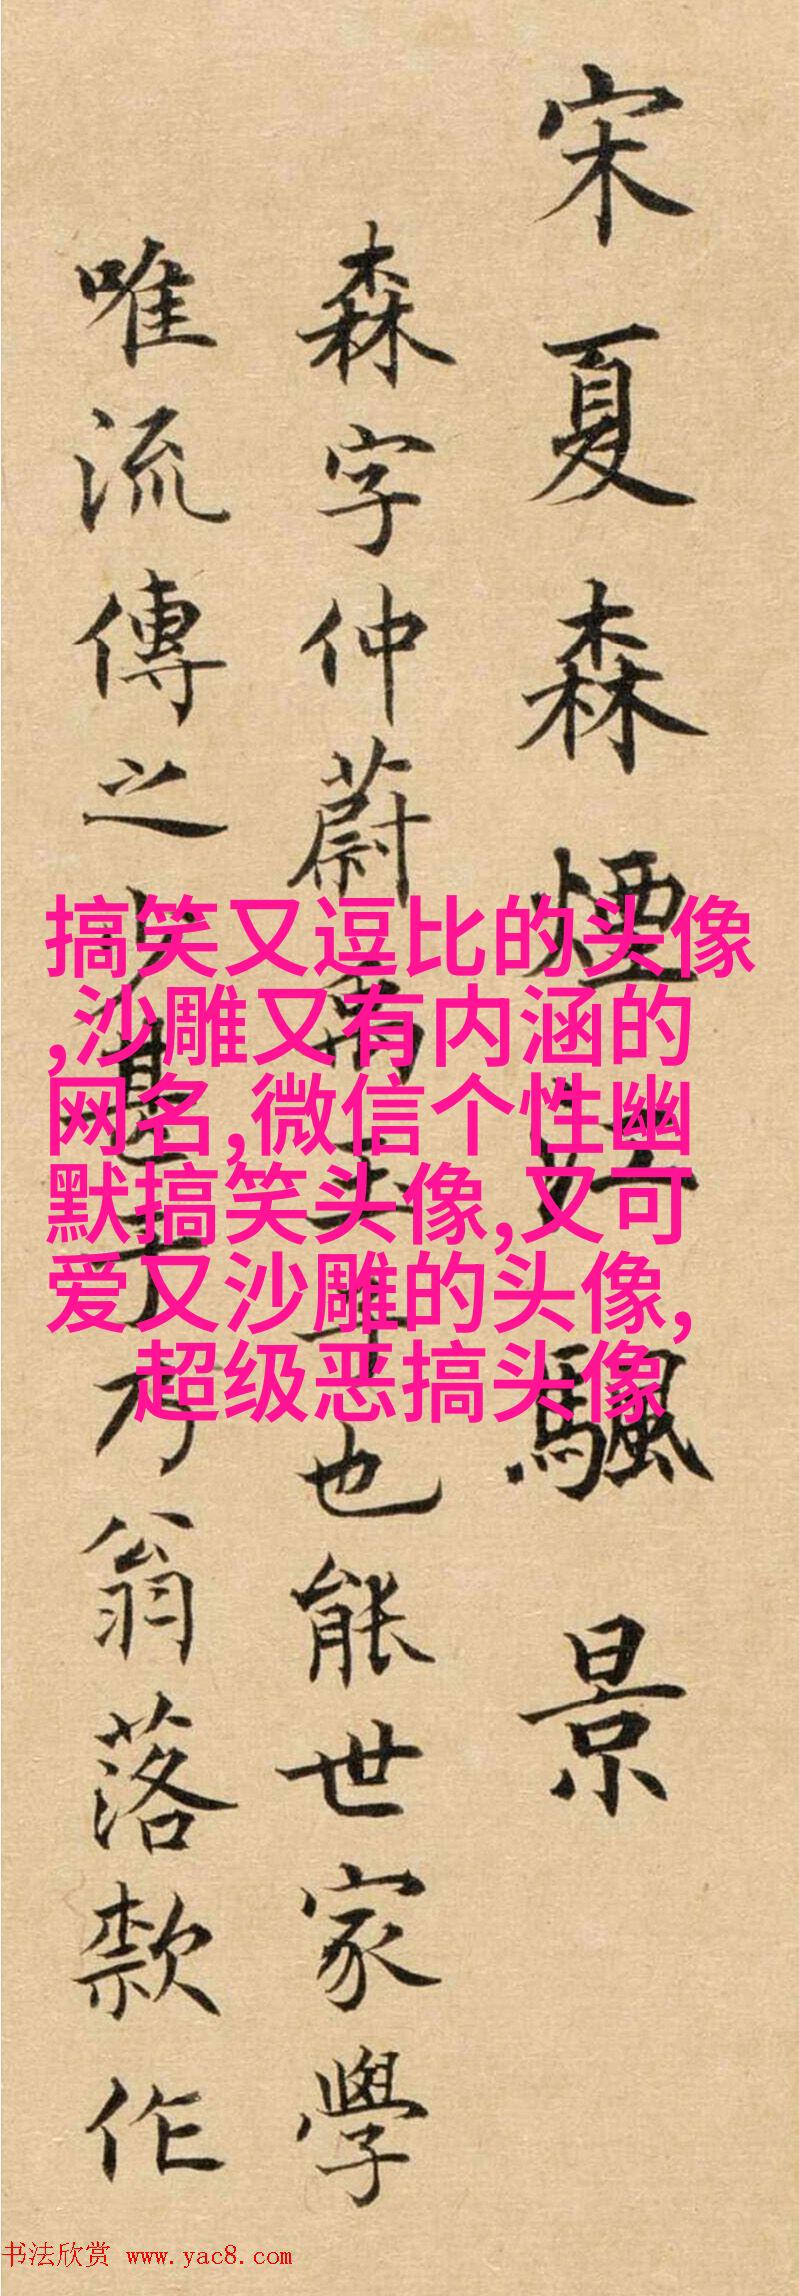 宋夏森煙江飄景
森字仲蔚禹玉子也能世家學
唯流傳之少甚于乃翁落款作
搞笑又逗比的头像
,沙雕又有内涵的
网名,微信个性幽
默搞笑头像,又可
爱又沙雕的头像,
超级恶搞头像
书法欣赏 www.yac8.com